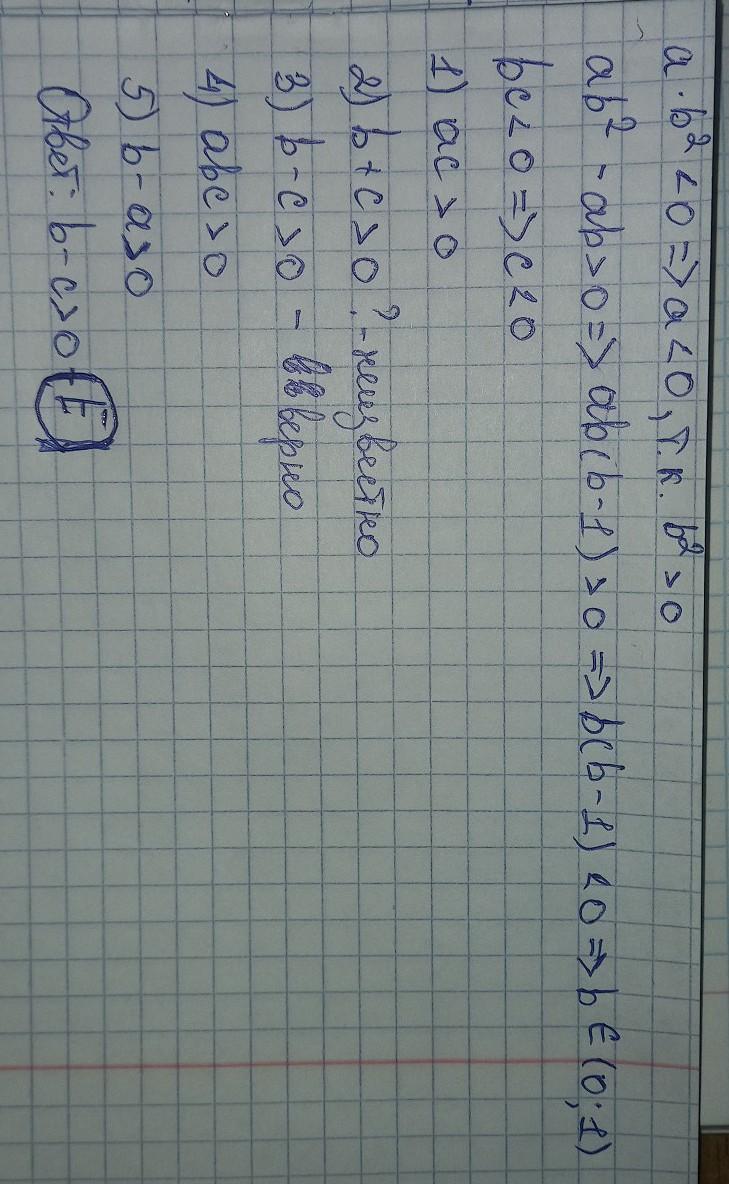 a · b² < 0 => a < 0, т.к. b² > 0
ab² - ab > 0 => ab(b-1) > 0 => b(b-1) < 0 => b ∈ (0;1)
bc < 0 => c < 0
1) ac > 0
2) b + c > 0 ? - неизвестно
3) b - c > 0 - верно
4) abc > 0
5) b - a > 0
Ответ: b - c > 0 - E